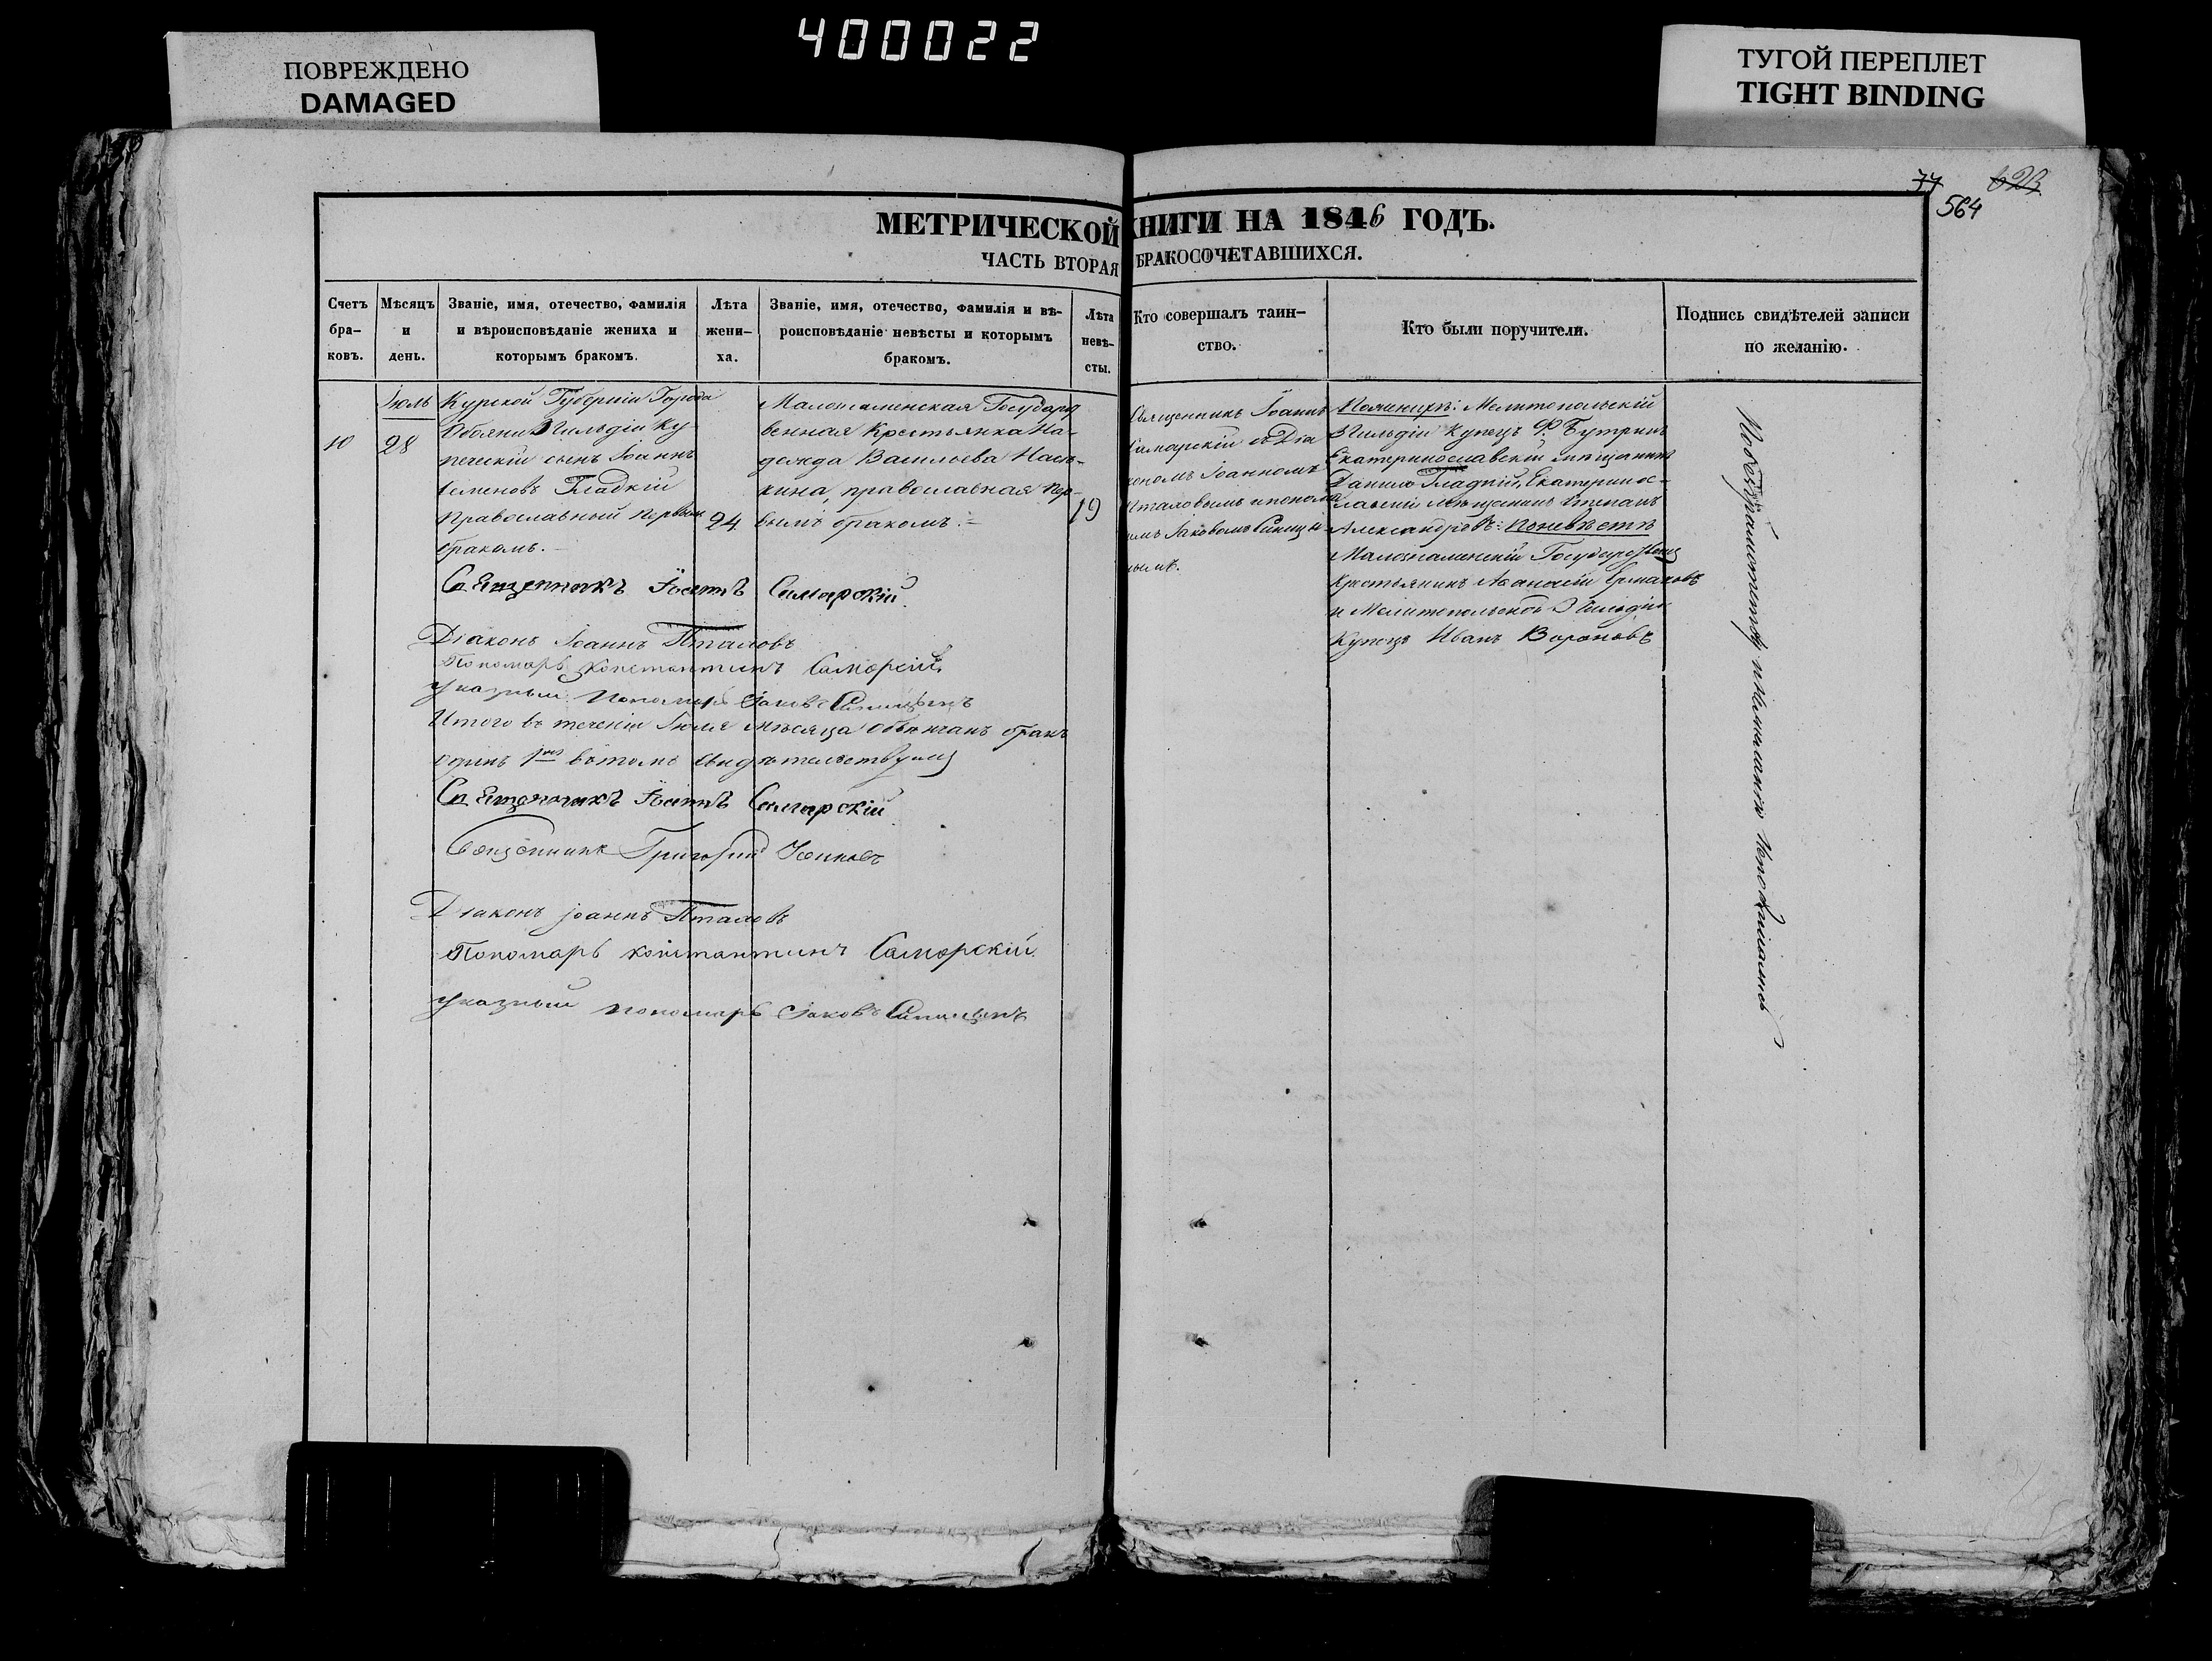 400022
ПОВРЕЖДЕНО
DAMAGED
ТУГОЙ ПЕРЕПЛЕТ
TIGHT BINDING
77 623
564
МЕТРИЧЕСКОЙ КНИГИ НА 1846 ГОДЪ.
ЧАСТЬ ВТОРАЯ БРАКОСОЧЕТАВШИХСЯ.
Счетъ бра-
ковъ.
Мѣсяцъ
и
день.
Званіе, имя, отечество, фамилія
и вѣроисповѣданіе жениха и
которымъ бракомъ.
Лѣта
жени-
ха.
Званіе, имя, отечество, фамилія и вѣ-
роисповѣданіе невѣсты и которымъ
бракомъ.
Лѣта
невѣ-
сты.
Кто совершалъ таин-
ство.
Кто были поручители.
Подпись свидѣтелей записи
по желанію.
10
Іюль
28
Курской Губерніи Города
Обояни 3 Гильдіи Ку
печескій сынъ Іоаннъ
Семеновъ Гладкій
Православный первымъ
бракомъ.
24
Малознаменская Государ
венная Крестьянка На-
дежда Васильева Насѣ-
кина, православная пер-
вымъ бракомъ.
19
Священникъ Іоаннъ
Самарскій съ Діа
кономъ Іоанномъ
Пталовымъ и понома
емъ Іаковомъ Синицы
нымъ.
Пожених: Мелитопольскій
3 Гильдіи Купецъ Ф. Бутринъ
Екатеринославскій мѣщанинъ
Данило Гладкій, Екатеринос-
лавскій Мѣщанинъ Степанъ
Александровъ: Поневѣстѣ
Малознаменскій Государствен
Крестьянинъ Афанасій Ермаковъ
и Мелитопольской 3 Гильдіи
Купецъ Иванъ Вороновъ
Священникъ Іоаннъ Самарскій
Діаконъ Іоаннъ Пталовъ
Пономарь Константинъ Самарскій
указный пономарь Іаковъ Синицынъ
Итого въ теченіи Іюля мѣсяца обвѣнчанъ бракъ
одинъ 1 въ томъ свидѣтельствуемъ
Священникъ Іоаннъ Самарскій
Священникъ Григорій
Діаконъ Іоаннъ Пталовъ
Пономарь Константинъ Самарскій
указный пономарь Іаковъ Синицынъ